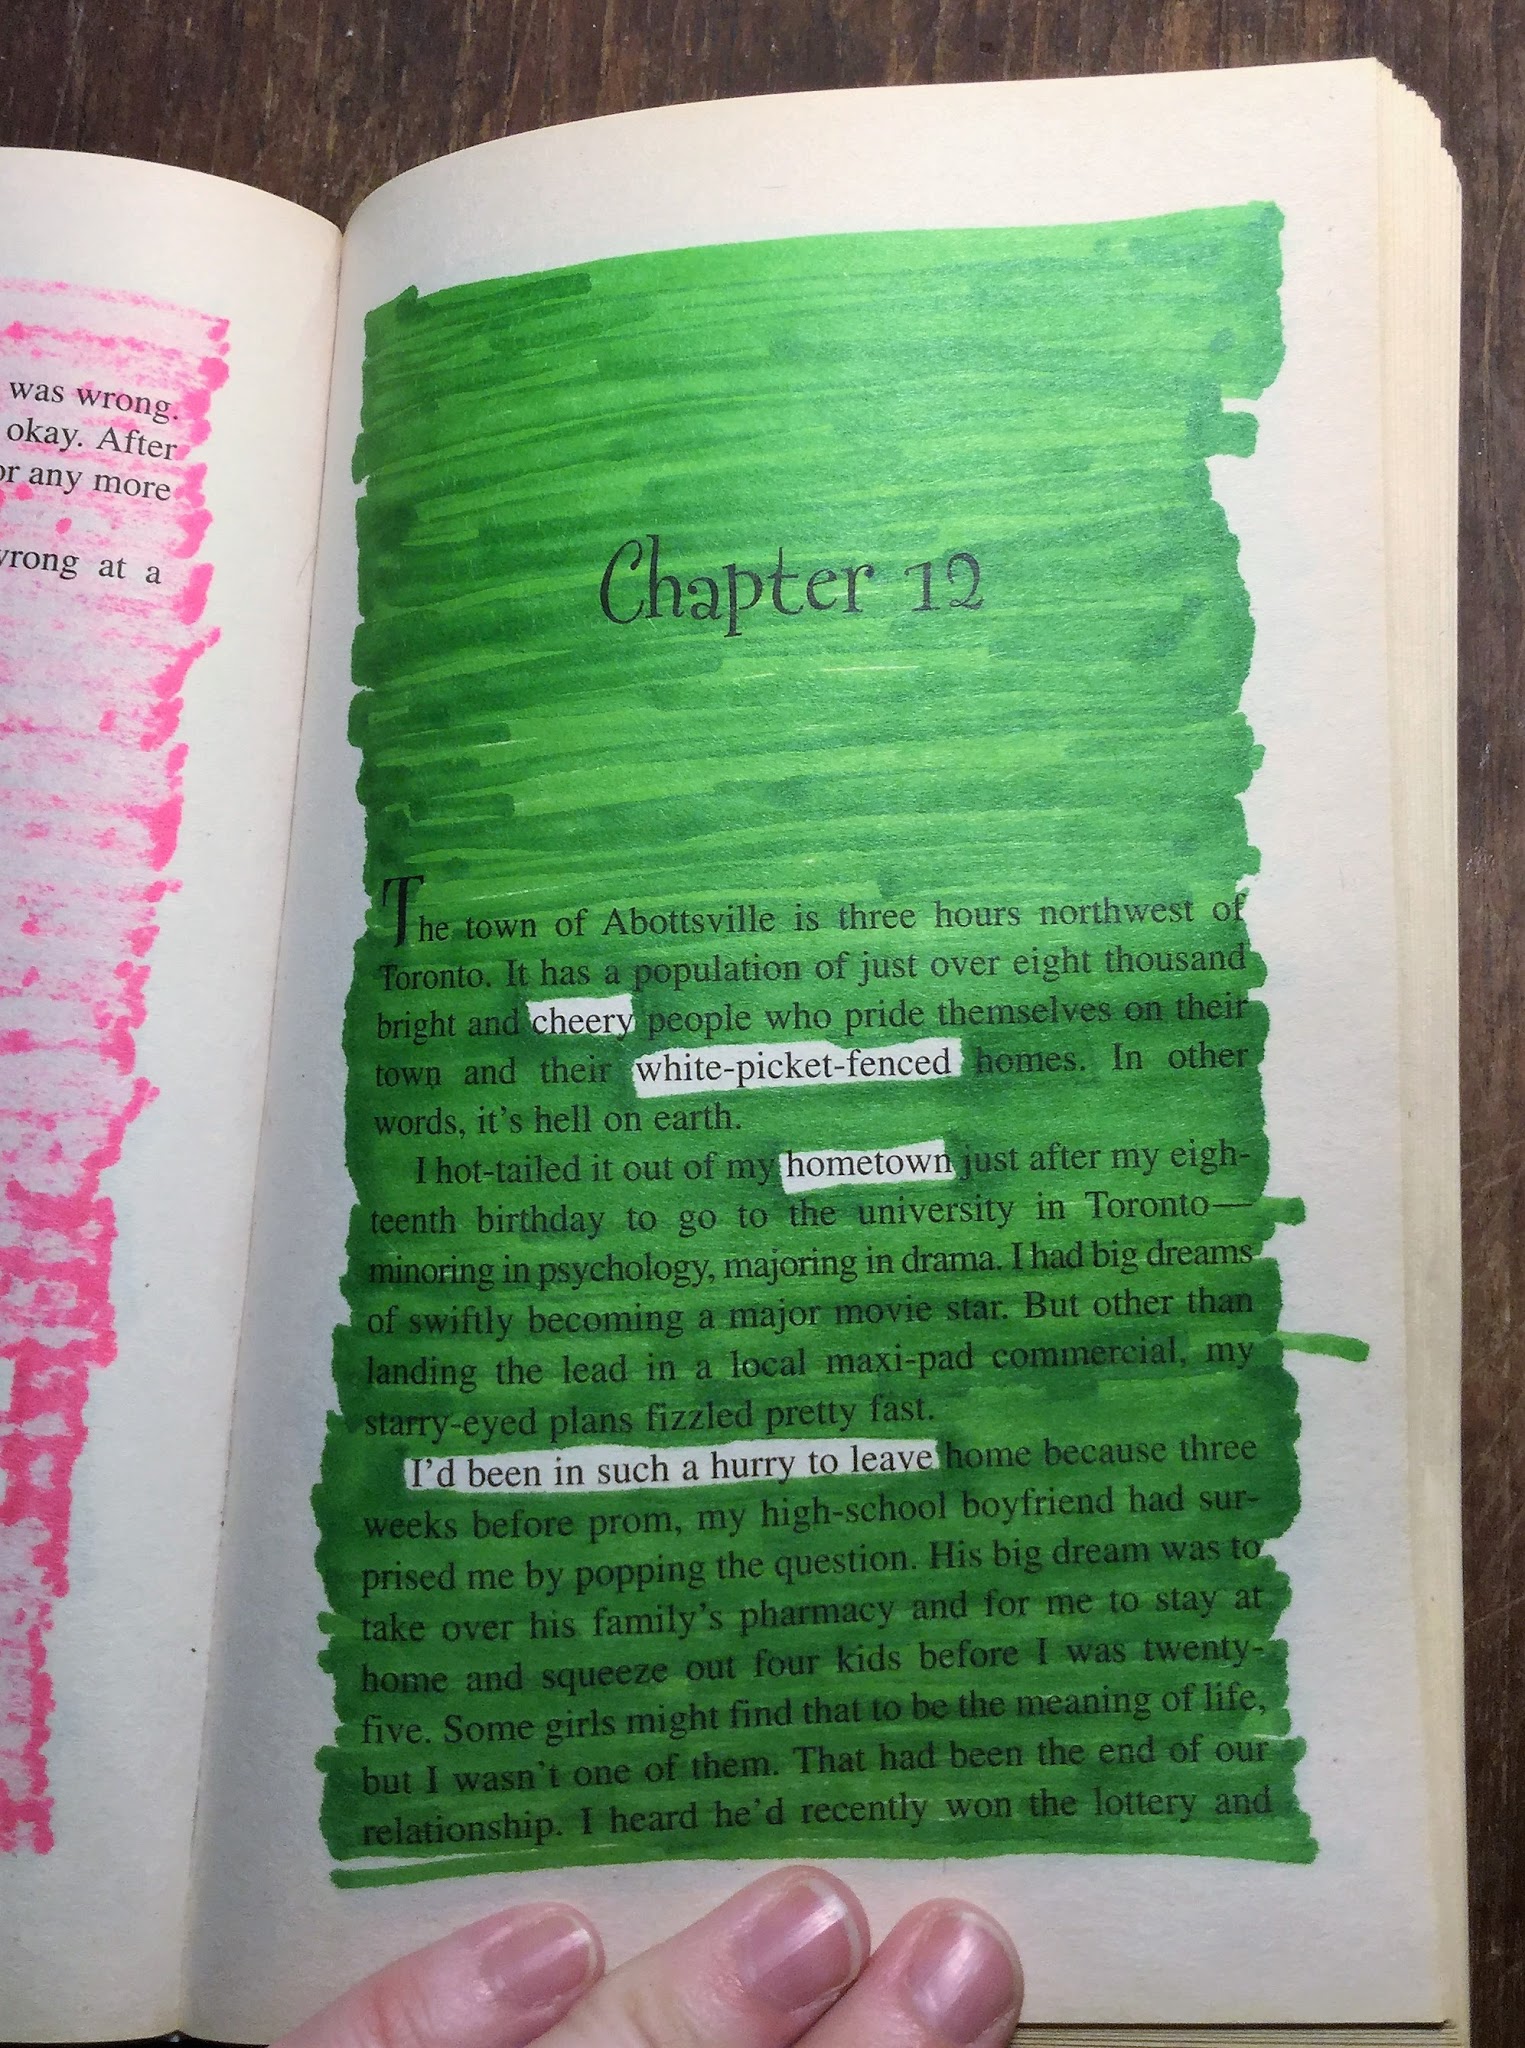 was wrong.
okay. After
or any more
wrong at a
Chapter 12
The town of Abottsville is three hours northwest of
Toronto. It has a population of just over eight thousand
bright and cheery people who pride themselves on their
town and their white-picket-fenced homes. In other
words, it's hell on earth.
I hot-tailed it out of my hometown just after my eigh-
teenth birthday to go to the university in Toronto—
minoring in psychology, majoring in drama. I had big dreams
of swiftly becoming a major movie star. But other than
landing the lead in a local maxi-pad commercial, my
starry-eyed plans fizzled pretty fast.
I'd been in such a hurry to leave home because three
weeks before prom, my high-school boyfriend had sur-
prised me by popping the question. His big dream was to
take over his family's pharmacy and for me to stay at
home and squeeze out four kids before I was twenty-
five. Some girls might find that to be the meaning of life,
but I wasn't one of them. That had been the end of our
relationship. I heard he'd recently won the lottery and